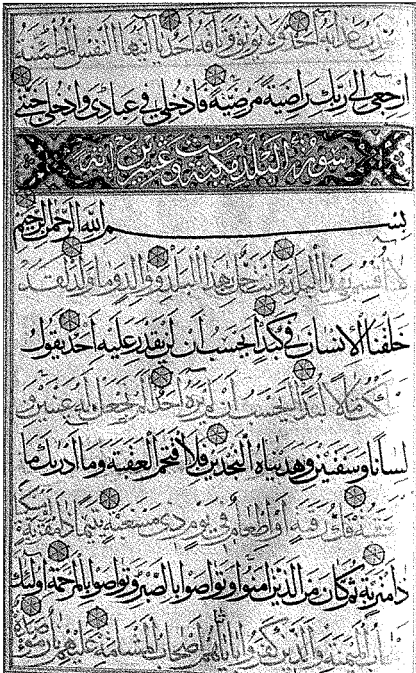 يعذب عذابه احد ولا يوثق وثاقه احد يا ايتها النفس المطمئنة
ارجعي الى ربك راضية مرضية فادخلي في عبادي وادخلي جنتي
سورة البلد مكية وهي عشرين آية
بسم الله الرحمن الرحيم
لا اقسم بهذا البلد وانت حل بهذا البلد ووالد وما ولد لقد
خلقنا الانسان في كبد ايحسب ان لن يقدر عليه احد يقول
اهلكت مالا لبدا ايحسب ان لم يره احد الم نجعل له عينين و
لسانا وشفتين وهديناه النجدين فلا اقتحم العقبة وما ادريك ما
العقبة فك رقبة او اطعام في يوم ذي مسغبة يتيما ذا مقربة او مسكينا
ذا متربة ثم كان من الذين امنوا وتواصوا بالصبر وتواصوا بالمرحمة اولئك
اصحاب الميمنة والذين كفروا باياتنا هم اصحاب المشأمة عليهم نار مؤصدة